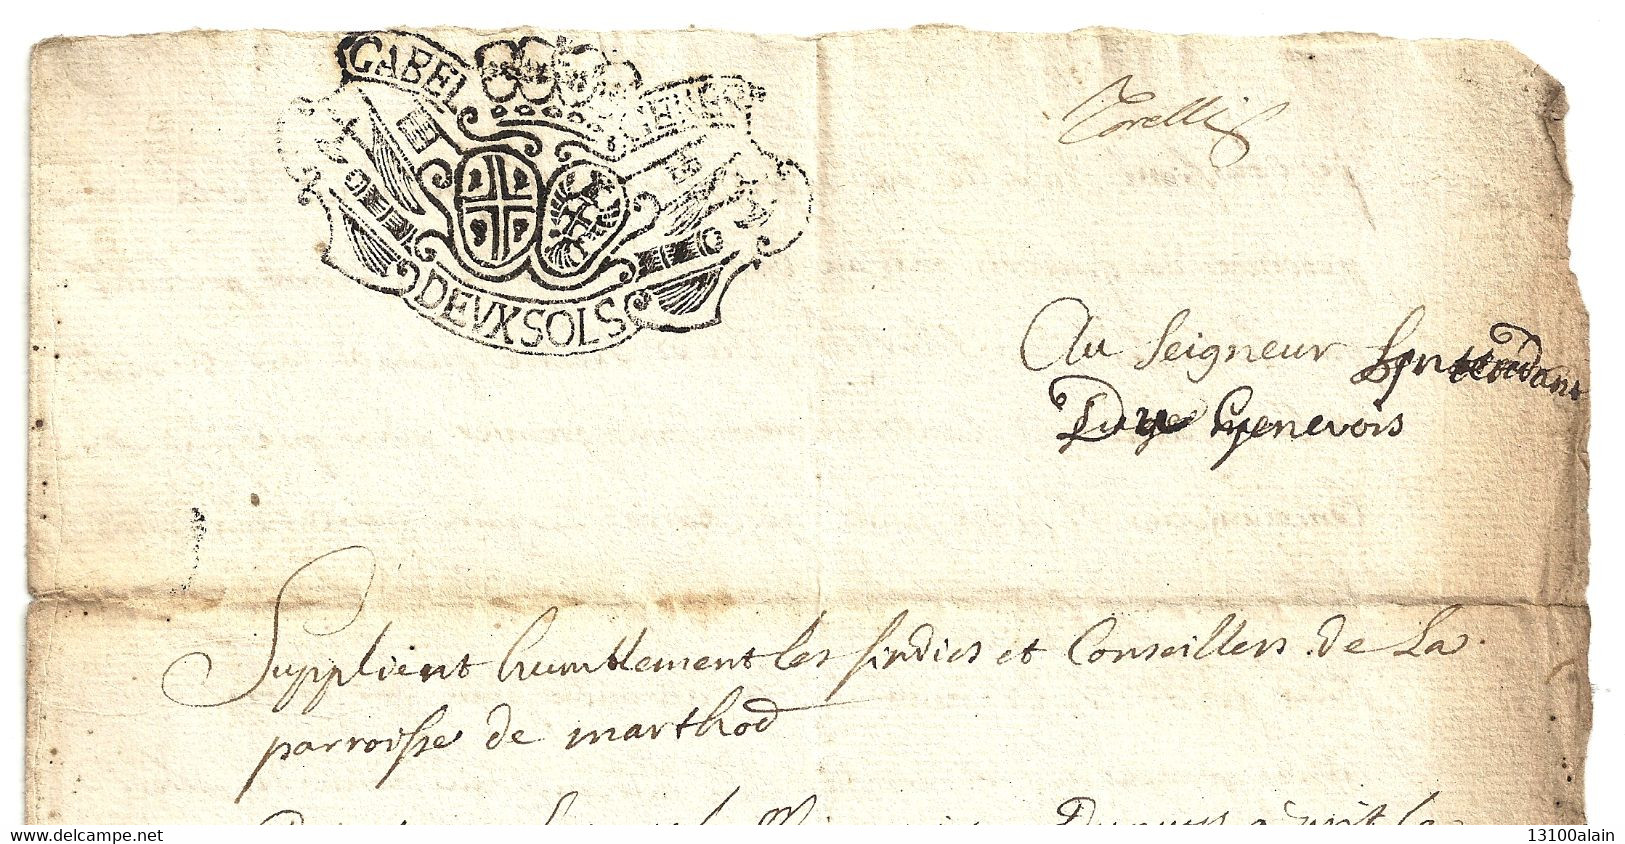 GABEL
DEVXSOLS
Torelli
Au seigneur Intendant
Du Genevois
Supplient humblement les sindics et Conseillers de La
parroisse de marthod
delcampe.net
13100alain